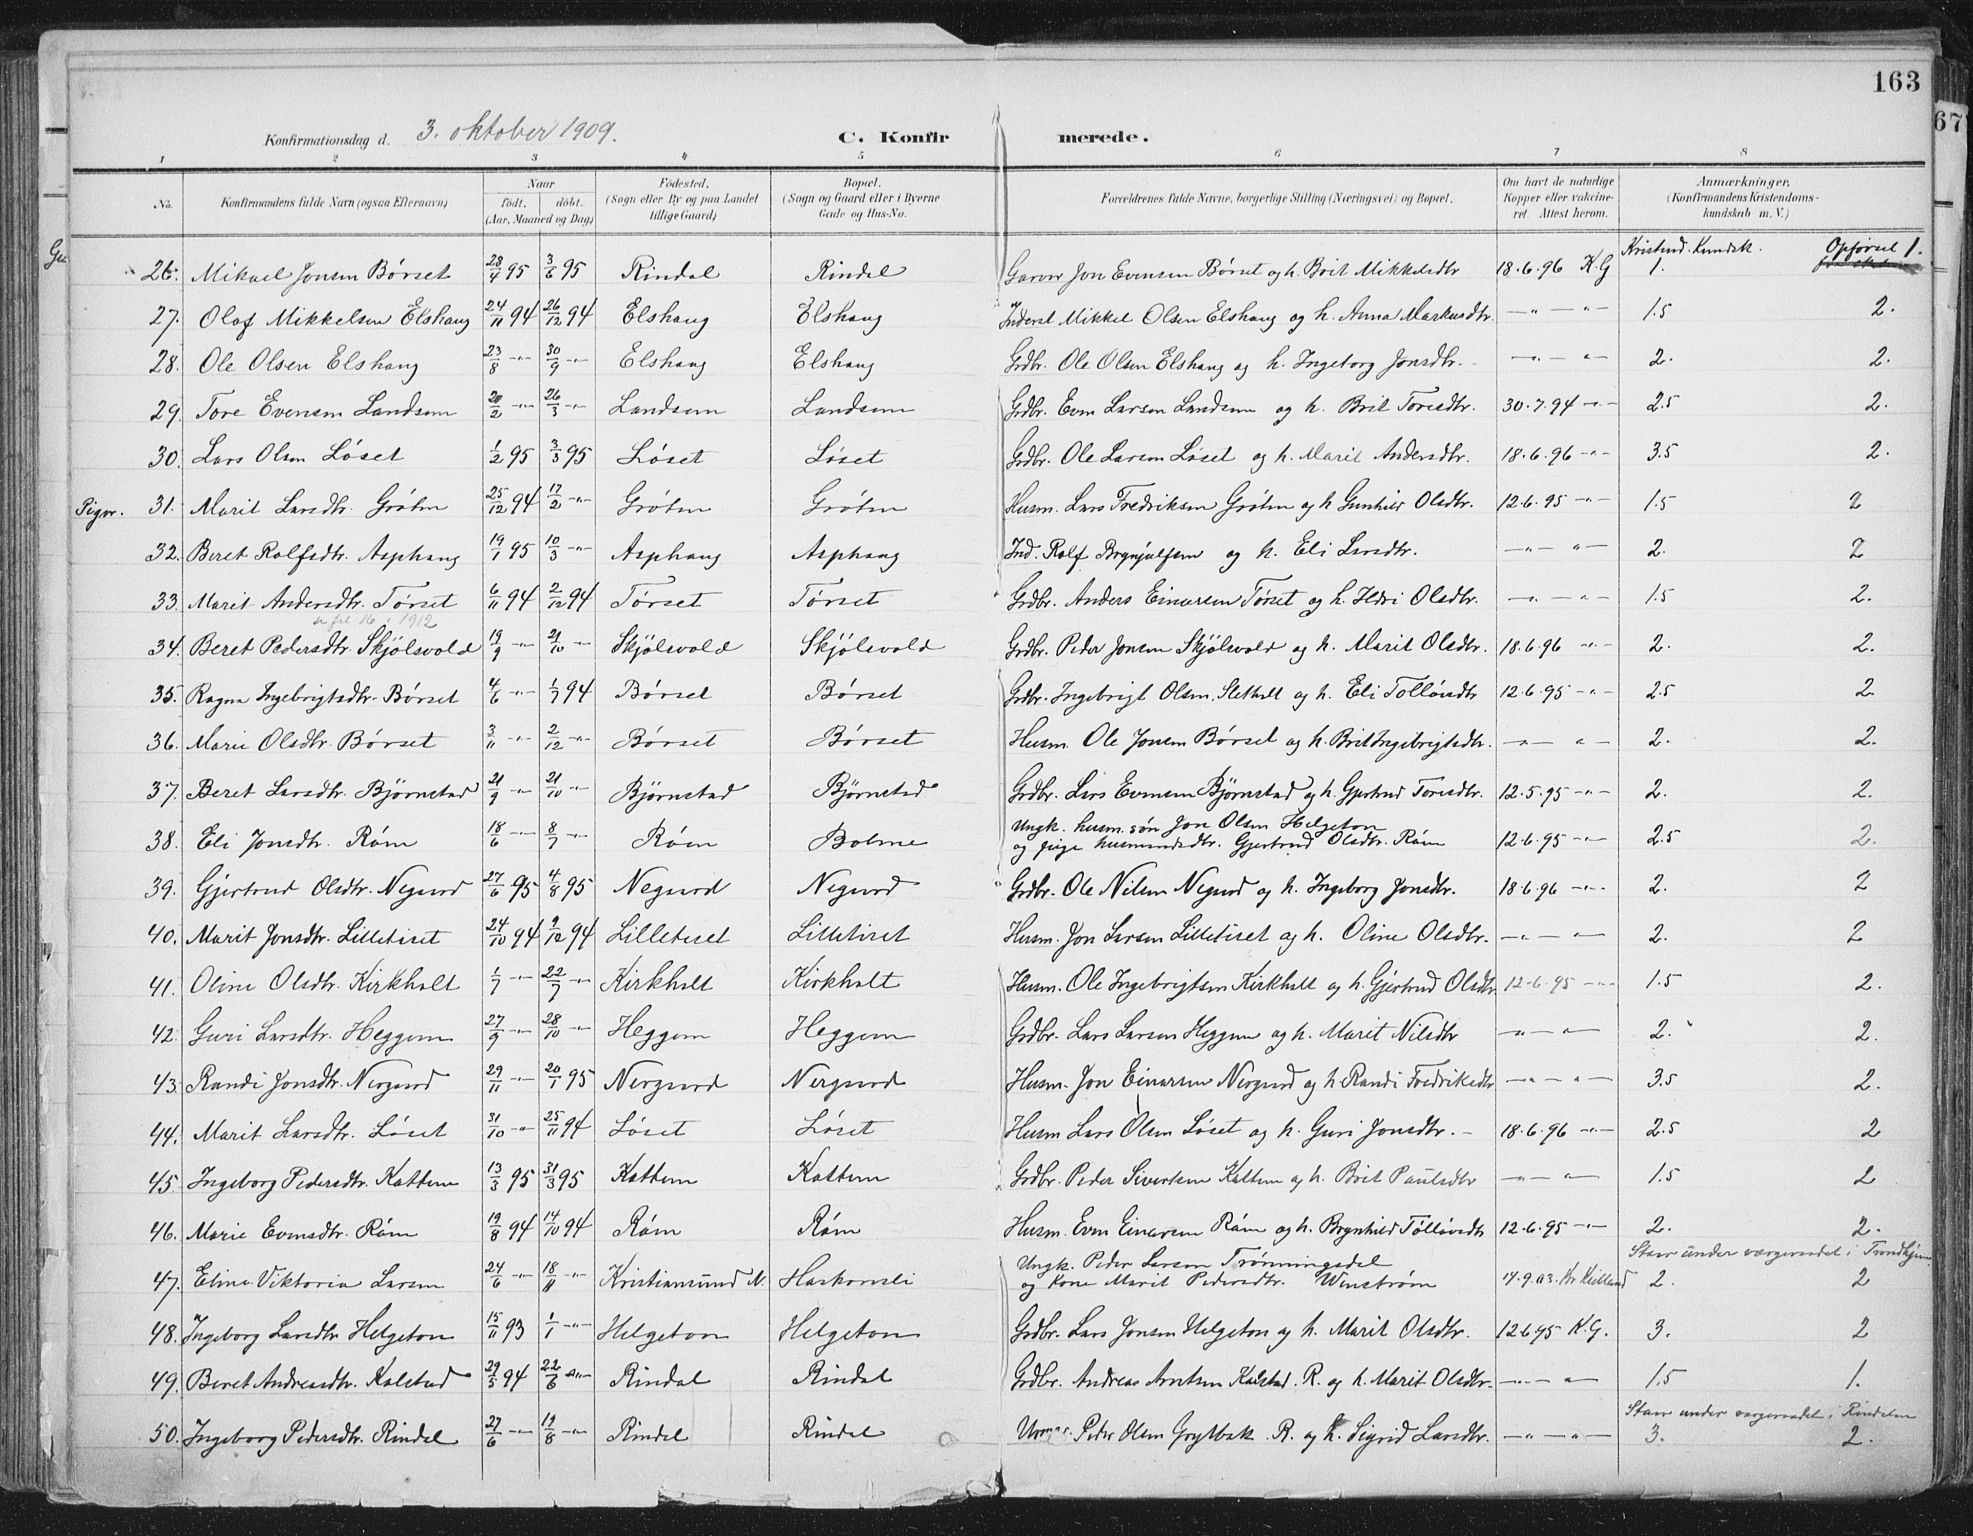 163
67
Konfirmationsdag d. 3. oktober 1909. C. Konfir merede.
1 2 3 4 5 6 7 8
No. Konfirmandens fulde Navn (ogsaa Efternavn) Naar født. døbt. (Aar, Maaned og Dag) Fødested. (Sogn eller By og paa Landet tillige Gaard) Bopæl. (Sogn og Gaard eller i Byerne Gade og Hus-No. Forældrenes fulde Navne, borgerlige Stilling (Næringsvei) og Bopæl. Om havt de naturlige Kopper eller vaccineret. Attest herom. Anmærkninger. (Konfirmandens Kristendomskundskab m. V.)
Kristend. Kundsk. Opførsel
26. Mikael Jonsen Børset 28/4 95 3/6 95 Rindal Rindal Garver Jon Evensen Børset og h. Brit Mikkelsdtr 18.6.96 K.G 1. 1.
27. Olaf Mikkelsen Elshaug 24/11 94 26/12 94 Elshaug Elshaug Inderst Mikkel Olsen Elshaug og h. Anna Markusdtr. —"— "— 1.5 2.
28. Ole Olsen Elshaug 23/8 —"— 30/9 —"— Elshaug Elshaug Grdbr. Ole Olsen Elshaug og h. Ingeborg Jonsdtr. —"— "— 2. 2.
29. Tore Evensen Landsem 20/2 —"— 26/3 —"— Landsem Landsem Grdbr. Even Larsen Landsem og h. Brit Toresdtr. 30.7.94 —"— 2.5 2.
30. Lars Olsen Løset 1/2 95 3/3 95 Løset Løset Grdbr. Ole Larsen Løset og h. Marit Andersdtr. 18.6.96 —"— 3.5 2.
Piger. 31. Marit Larsdtr. Grøten 25/12 94 17/2 —"— Grøten Grøten Husm. Lars Fredriksen Grøten og h Gunhild Olsdtr. 12.6.95 —"— 1.5 2
32. Beret Rolfsdtr. Asphaug 19/1 95 10/3 —"— Asphaug Asphaug Ind. Rolf Brynjulfsen og h. Eli Larsdtr. —"— "— 2. 2
33. Marit Andersdtr. Tørset 6/11 94 2/12 94 Tørset Tørset Grdbr. Anders Einarsen Tørset og h. Ildri Olsdtr. —"— "— 1.5 2.
16 1912
34. Beret Pedersdtr. Skjølsvold 19/9 —"— 21/10 —"— Skjølsvold Skjølsvold Grdbr. Peder Jonsen Skjølsvold og h. Marit Olsdtr. 18.6.96 —"— 2. 2.
35. Ragna Ingebrigtsdtr. Børset 4/6 —"— 1/7 94 Børset Børset Grdbr. Ingebrigt Olsen Sletholt og h. Eli Tolløvsdtr 12.6.95 —"— 2.5 2
36. Marie Olsdtr. Børset 3/11 —"— 2/12 —"— Børset Børset Husm. Ole Jonsen Børset og h. Brit Ingebrigtsdtr. —"— "— 2. 2.
37. Beret Larsdtr. Bjørnstad 21/9 —"— 21/10 —"— Bjørnstad Bjørnstad Grdbr. Lars Evensen Bjørnstad og h. Gjertrud Toresdtr. 12.5.95 —"— 2. 2.
38. Eli Jonsdtr. Røm 18/6 —"— 8/7 —"— Røm Bolme Ungk. husm. søn Jon Olsen Helgeton og pige husmandsdtr. Gjertrud Olsdtr. Røm 12.6.95 —"— 2.5 2.
39. Gjertrud Olsdtr. Negard 27/6 95 4/8 95 Negard Negard Grdbr. Ole Nilsen Negard og h. Ingeborg Jonsdtr. 18.6.96 —"— 2. 2
40. Marit Jonsdtr. Lilletiset 24/10 94 9/12 94 Lilletiset Lilletiset Husm. Jon Larsen Lilletiset og h. Oline Olsdtr. —"— "— 2. 2
41. Oline Olsdtr. Kirkholt 1/7 —"— 22/7 —"— Kirkholt Kirkholt Husm. Ole Ingebrigtsen Kirkholt og h. Gjertrud Olsdtr 12.6.95 —"— 1.5 2.
42. Guri Larsdtr. Heggem 27/9 —"— 28/10 —"— Heggem Heggem Grdbr. Lars Larsen Heggem og h. Marit Nilsdtr —"— "— 2. 2.
43. Randi Jonsdtr. Nergard 29/11 —"— 20/1 95 Nergard Nergard Husm. Jon Einarsen Nergard og h Randi Fredriksdtr —"— "— 3.5 2.
44. Marit Larsdtr. Løset 31/10 —"— 25/11 94 Løset Løset Husm Lars Olsen Løset og h. Guri Jonsdtr. — 18.6.96 —"— 2.5 2
45. Ingeborg Pedersdtr. Kattem 13/3 95 31/3 95 Kattem Kattem Grdbr. Peder Sivertsen Kattem og h. Brit Paulsdtr —"— "— 1.5 2
46. Marie Evensdtr. Røm 19/8 94 14/10 94 Røm Røm Husm. Even Einarsen Røm og h. Brynhild Tølløvsdtr 12.6.95 —"— 2. 2.
47. Eline Viktoria Larsen 24/6 —"— 18/11 —"— Kristiansund N. Haskornsli Ungk. Peder Larsen Trønningsdal og Kone Marit Pedersdtr. Wenstrøm 17.9.03. Kr Kielland Staar under værgeraadet i Trondhjem 2. 2
48. Ingeborg Larsdtr Helgeton 15/11 93 1/1 —"— Helgeton Helgeton Grdbr. Lars Jonsen Helgeton og h. Marit Olsdtr. 12.6.95 K.G. 3. 2
49. Beret Andreasdtr. Kalstad 29/5 94 22/6 —"— Rindal Rindal Grdbr. Andreas Arntsen Kalstad. R. og h. Marit Olsdtr. —"— "— 1.5 1.
50. Ingeborg Pedersdtr. Rindal 27/6 —"— 19/8 —"— Rindal Rindal Peder Olsen Grytbak R. og h. Sigrid Larsdtr. —"— "— Staar under værgeraadet i Rindalen 3. 2.